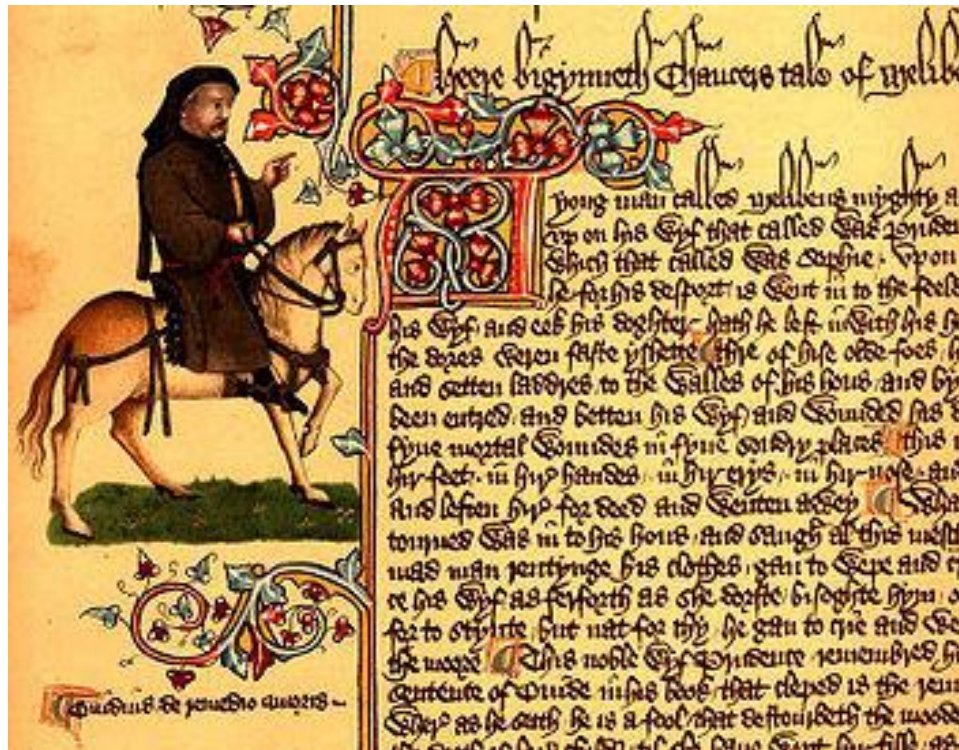 Heere bigynneth Chaucers tale of Melibe
A yong man called Melibeus myghty a
vp on his wyf that called was Pruden
which that called was Sophie. Vpon
he for his desport is went in to the feeld
his wyf and eek his doghter hath he left inwith his h
the dores weren faste yshette thre of hise olde foes h
and setten laddres to the walles of his hous and by
been entred and betten his wyf and wounded his d
fyue mortal woundes in fyue sondry places this
hir feet in hir handes in hir erys in hir nose and
and leften hir for deed and wenten awey Whan
torned was in to his hous and saugh al this mesch
mad man rentynge his clothes gan to wepe and c
ce his wyf as ferforth as she dorste bisoghte hym o
for to stynte but nat for thy he gan to crie and we
the moore This noble wyf Prudence remembred hi
sentence of Ouide in his book that cleped is the rem
Wher as he seith he is a fool that destourbeth the moode
Ouidius de remedio amoris